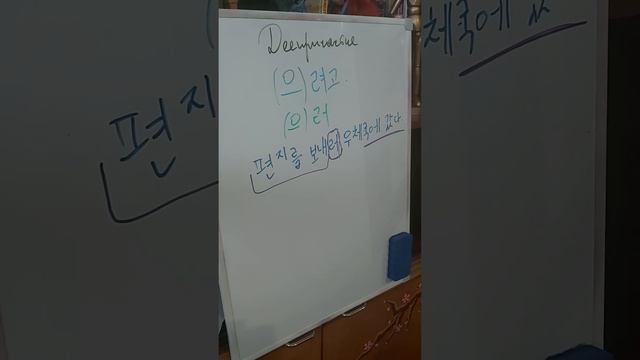 Деепричастие
(으) 려고.
(으) 러
편지를 보내러 우체국에 갔다